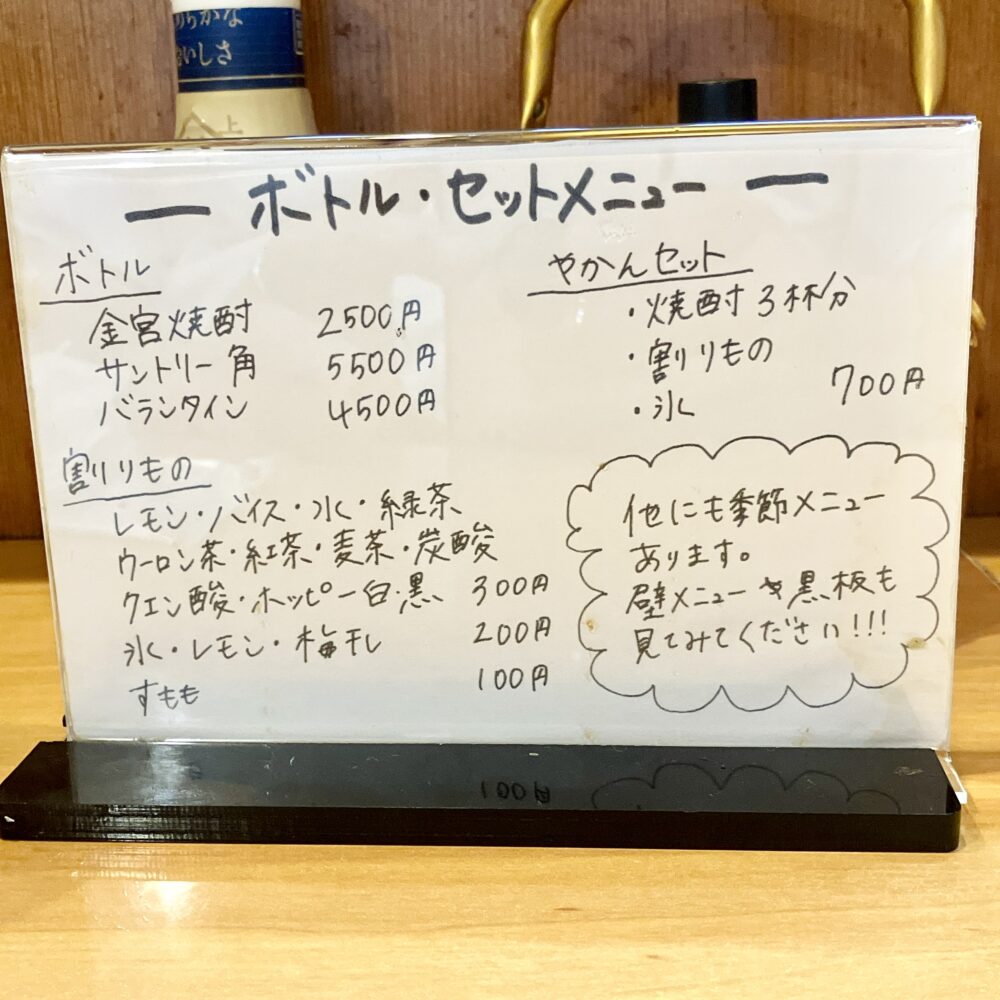 めらかな
おいしさ
― ボトル・セットメニュー ―
ボトル
金宮焼酎 2500円
サントリー角 5500円
バランタイン 4500円
割りもの
レモン・バイス・氷・緑茶
ウーロン茶・紅茶・麦茶・炭酸
クエン酸・ホッピー白・黒 300円
氷・レモン・梅干し 200円
すもも 100円
やかんセット
・焼酎3杯分
・割りもの
・氷 700円
他にも季節メニュー
あります。
壁メニューや黒板も
見てみてください!!!